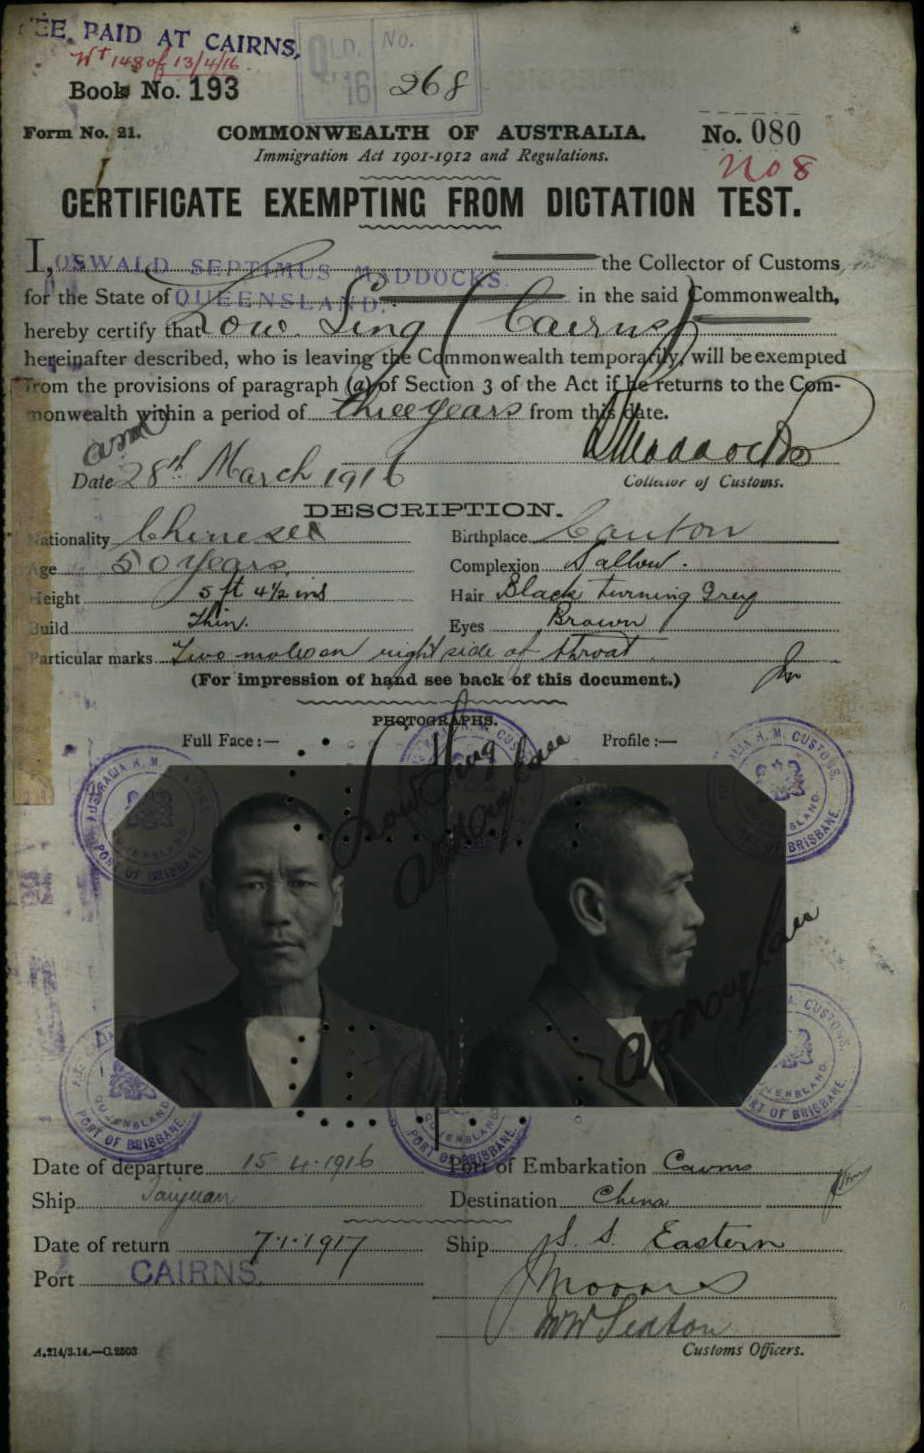 FEE PAID AT CAIRNS,
Wt 148 of 13/4/16.
QLD. No.
16 268
Book No. 193
Form No. 21. COMMONWEALTH OF AUSTRALIA. No. 080
Immigration Act 1901-1912 and Regulations.
No 8
CERTIFICATE EXEMPTING FROM DICTATION TEST.
I, OSWALD SEPTIMUS MADDOCKS. the Collector of Customs
for the State of QUEENSLAND. in the said Commonwealth,
hereby certify that Low Sing (Cairns)
hereinafter described, who is leaving the Commonwealth temporarily, will be exempted
from the provisions of paragraph (a) of Section 3 of the Act if he returns to the Com-
monwealth within a period of three years from this date.
Maddocks
Date 28th March 1916 Collector of Customs.
DESCRIPTION.
Nationality Chinese Birthplace Canton
Age 50 years. Complexion Sallow.
Height 5 ft 4½ ins Hair Black turning Grey
Build Thin. Eyes Brown
Particular marks Two moles on right side of throat
(For impression of hand see back of this document.)
PHOTOGRAPHS.
Full Face :— Profile :—
Low Sing
AUSTRALIA H. M. CUSTOMS.
QUEENSLAND.
PORT OF BRISBANE.
Date of departure 15.4.1916 Port of Embarkation Cairns
Ship Taiyuan Destination China
Date of return 7.1.1917 Ship S. S. Eastern
Port CAIRNS.
Customs Officers.
A.214/3.14.—C.2503